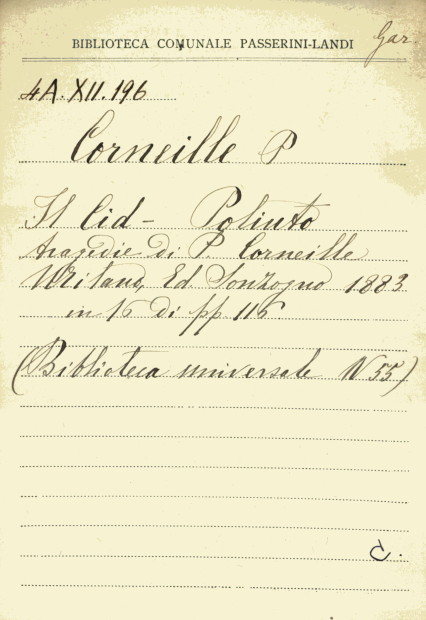 BIBLIOTECA COMUNALE PASSERINI-LANDI
Gar.
4A.XII.196
Corneille P
Il Cid - Poliuto
tragedie di P. Corneille
Milano, Ed. Sonzogno 1883
in 16 di pp 116
(Biblioteca universale N 55)
C.